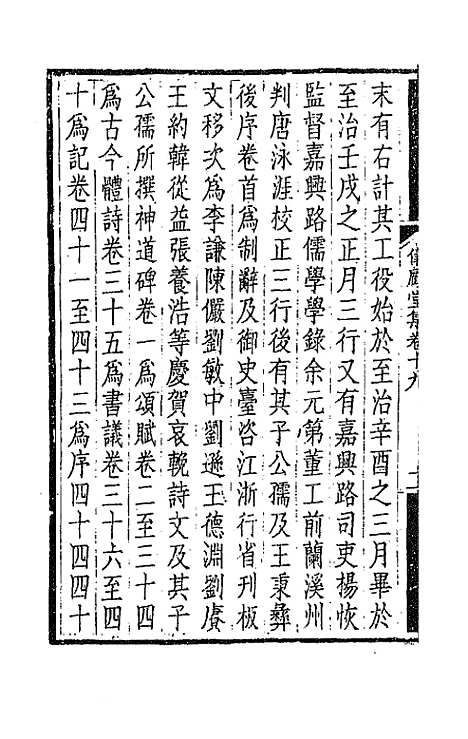 儀顧堂集卷十九
末有右計其工役始於至治辛酉之三月畢於
至治壬戌之正月三行又有嘉興路司吏楊恢
監督嘉興路儒學學錄余元第董工前蘭溪州
判唐泳涯校正三行後有其子公孺及王秉彝
後序卷首爲制辭及御史臺咨江浙行省刋板
文移次爲李謙陳儼劉敏中劉遜王德淵劉賡
王約韓從益張養浩等慶賀哀輓詩文及其子
公孺所撰神道碑卷一爲頌賦卷二至三十四
爲古今體詩卷三十五爲書議卷三十六至四
十爲記卷四十一至四十三爲序四十四四十